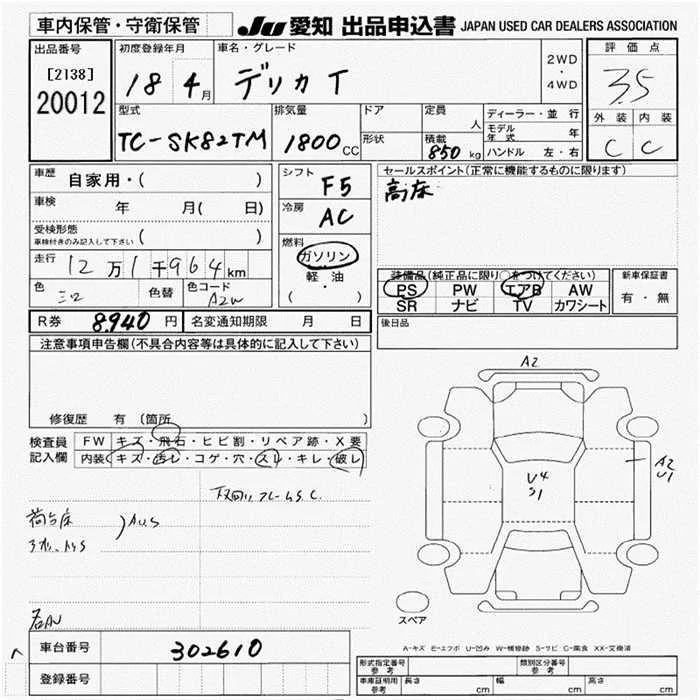 車内保管・守衛保管
JU 愛知 出品申込書 JAPAN USED CAR DEALERS ASSOCIATION
出品番号
[2138]
20012
初度登録年月
18 4月
車名・グレード
デリカT
2WD
・
4WD
評価点
3.5
外装 内装
C C
型式
TC-SK82TM
排気量
1800CC
ドア
形状
定員
人
積載
850kg
ディーラー・並行
モデル年式 年
ハンドル 左・右
車歴 自家用・( )
車検 年 月( 日)
受検形態
車検付きのみ記入して下さい ( )
走行 12万1千964km
色
色替
色コード
A2W
シフト F5
冷房 AC
燃料
ガソリン
軽・油
( )
セールスポイント(正常に機能するものに限ります)
高床
装備品(純正品に限り○をつけてください)
PS PW エアB AW
SR ナビ TV カワシート
新車保証書
有・無
後日品
R券 8,940円 名変通知期限 月 日
注意事項申告欄(不具合内容等は具体的に記入して下さい)
修復歴 有(箇所 )
検査員記入欄
FW キズ・飛石・ヒビ割・リペア跡・X要
内装 キズ・汚レ・コゲ・穴・スレ・キレ・破レ
下回り フレームS.C.
荷台床 )AUS
A2
U4
S1
A2
U1
スペア
A-キズ E-エクボ U-凹み W-補修跡 S-サビ C-腐食 XX-交換済
車台番号 302610
登録番号
型式指定番号 参考
類別区分番号 参考
車庫証明用 参考 長さ cm 幅 cm 高さ cm